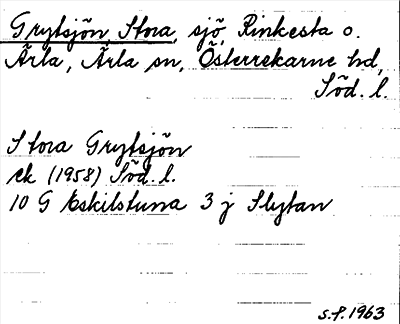 Grytsjön, Stora, sjö, Rinkesta o.
Ärla, Ärla sn, Österrekarne hd,
Söd. l.
Stora Grytsjön
ek (1958) Söd. l.
10 G Eskilstuna 3 j Slytan
s.f. 1963